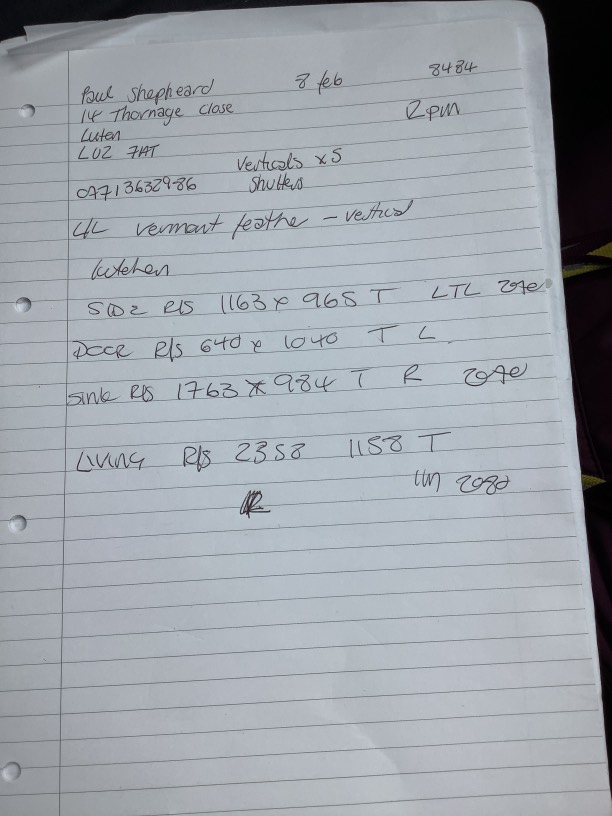 Paul Shepheard 8 feb 8484
14 Thornage Close 2pm
Luton
LU2 7AT
Verticals x5
07713632986 Shutters
Vermont feathe - vertical
kitchen
R/S 1163 x 965 T LTL
DOOR R/S 640 x 1040 T L
Sink R/S 1763 x 984 T R
Living R/S 2358 1158 T